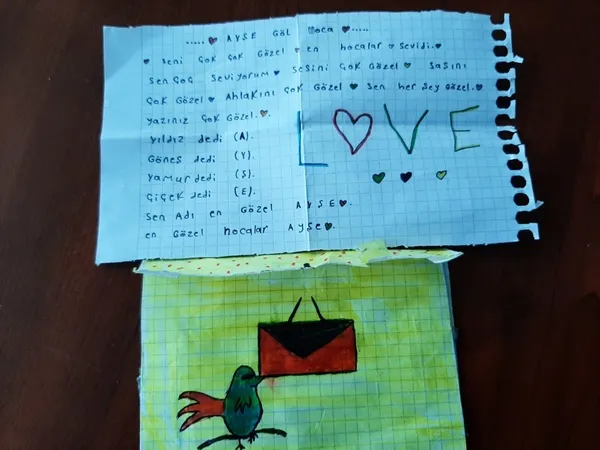 .....♥ AYSE GÜL Hoca ♥.....
♥ seni çok çok Güzel ♥ en hocalar ♥ sevidi.♥
sen çog seviyorum ♥ sesini çok Güzel ♥ sasını
çok Güzel ♥ Ahlakını çok Güzel ♥ sen her şey Güzel.♥
yazınız çok Güzel.♥
yıldız dedi (A).
Güneş dedi (Y).
Yamur dedi (S).
çiçek dedi (E).
Sen Adı en Güzel AYSE♥.
en Güzel hocalar AYSE♥.
L♥VE